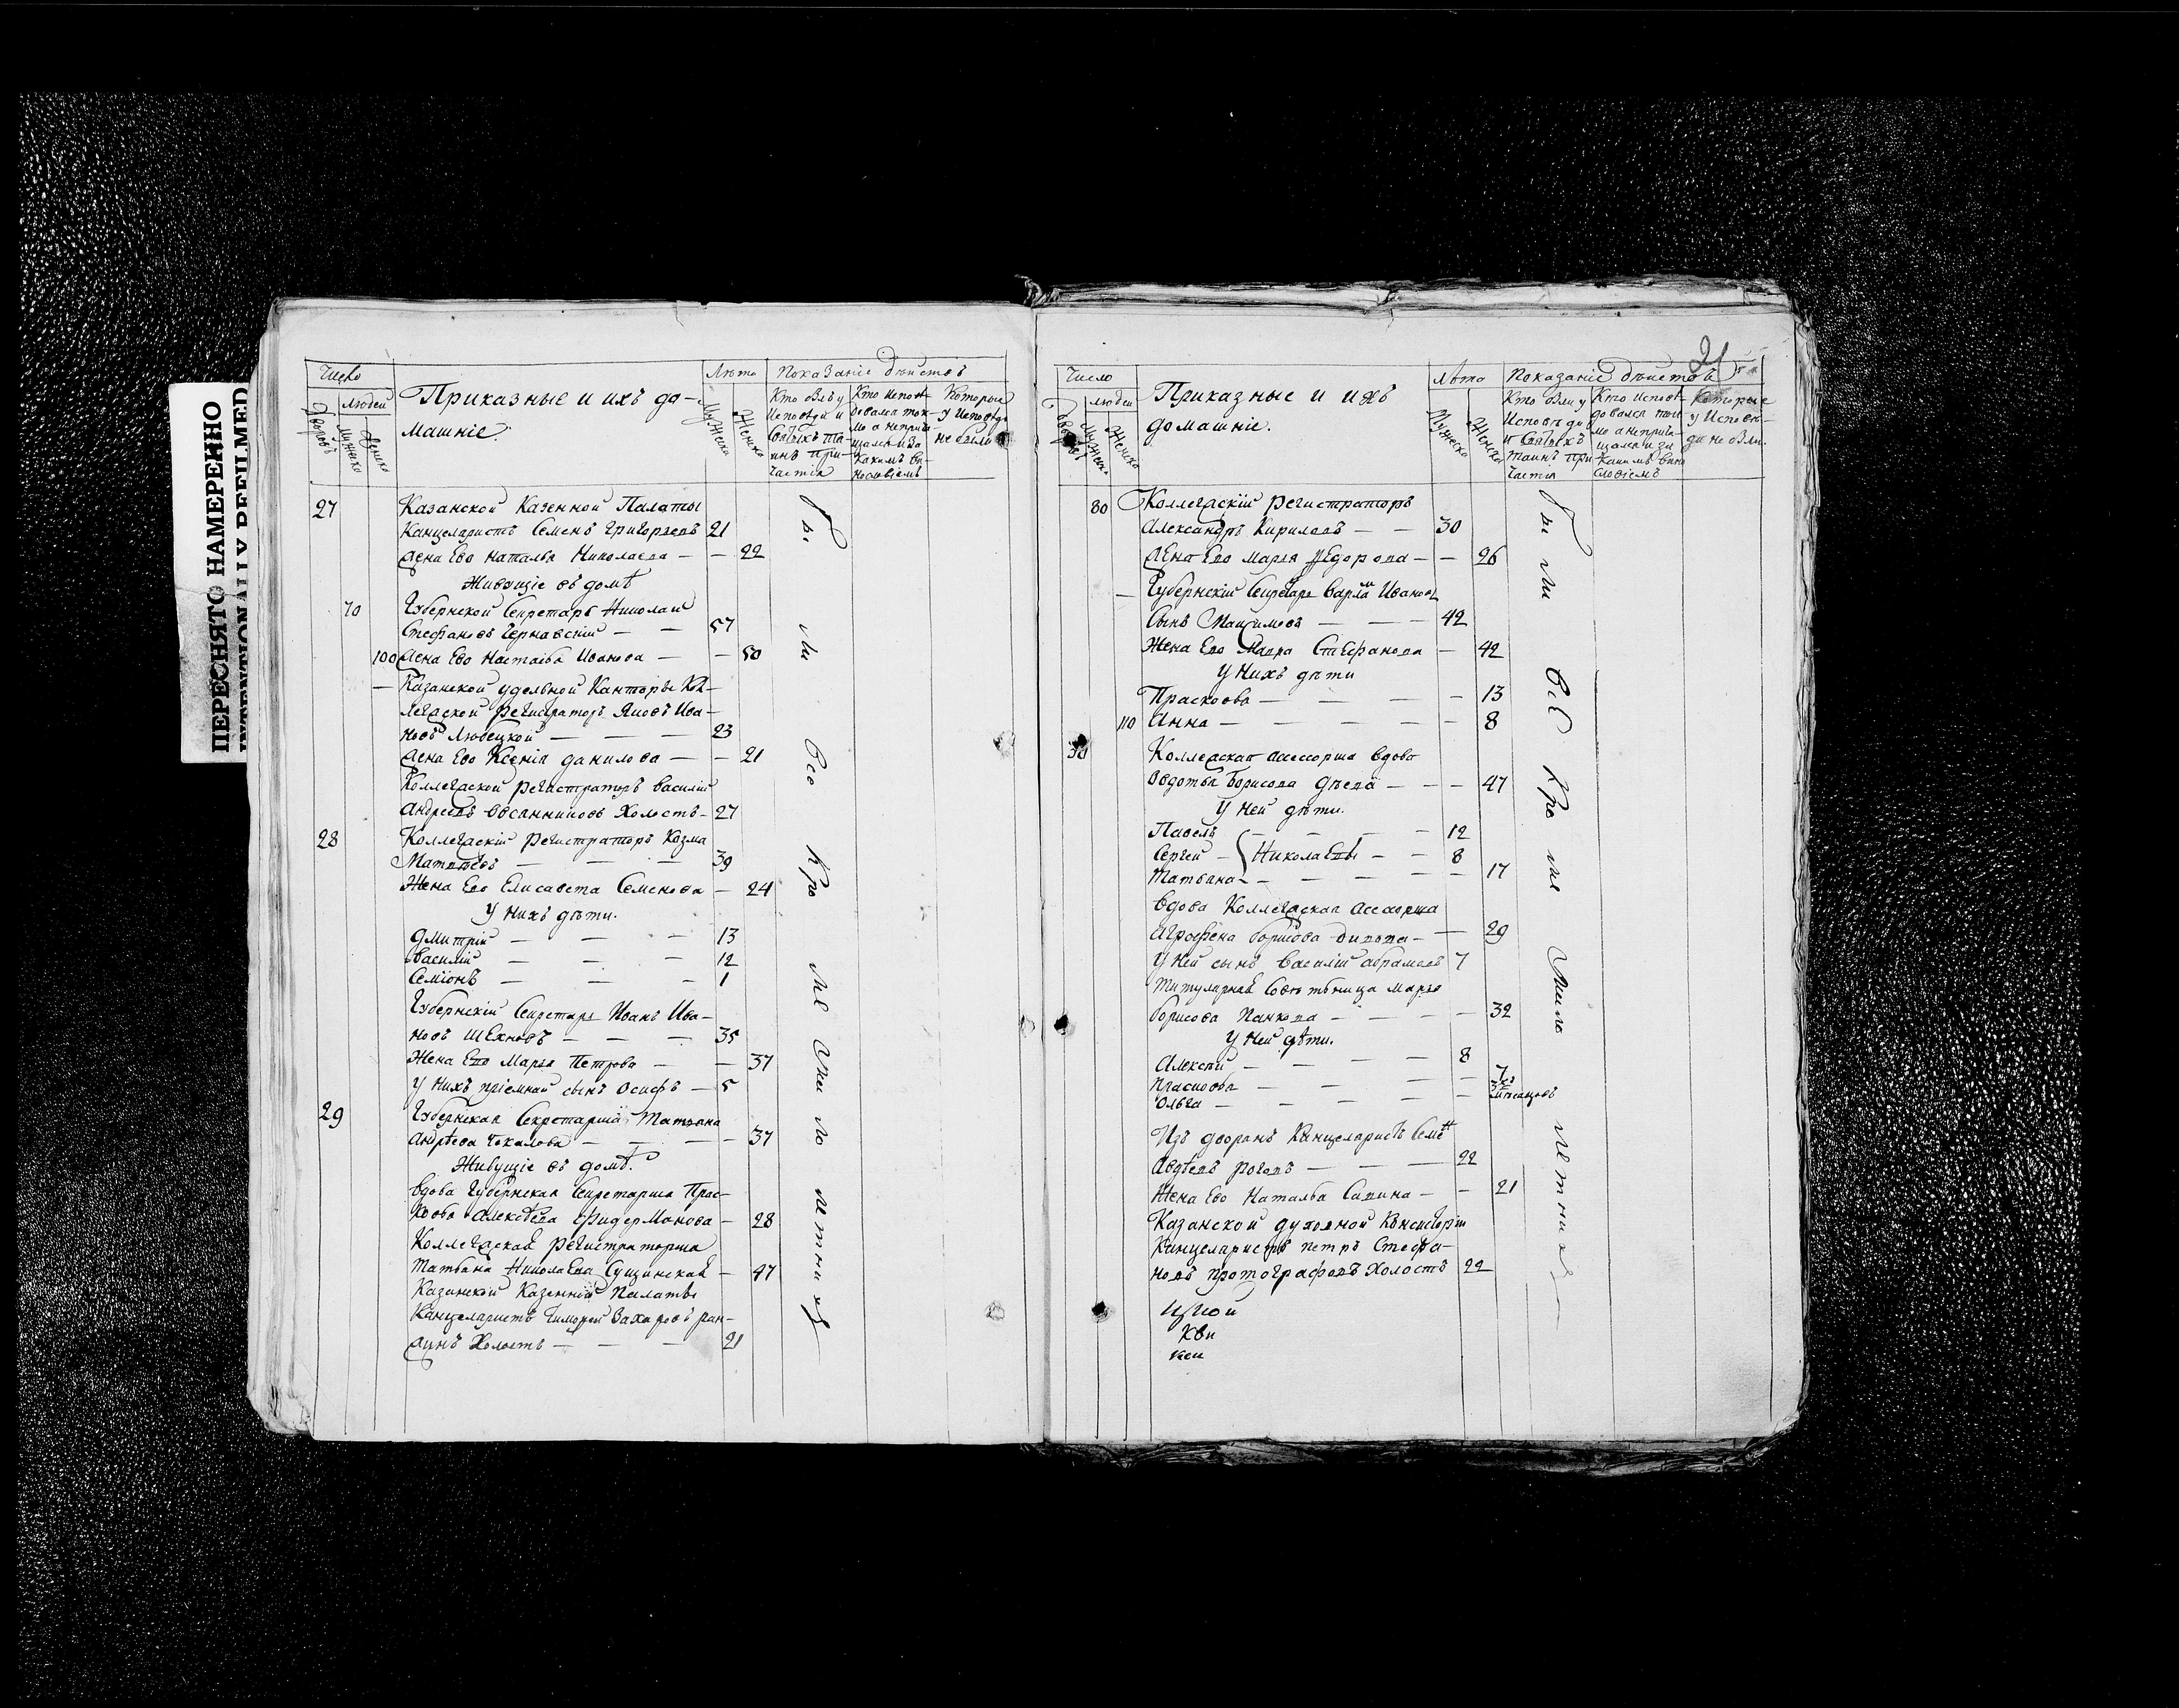 ПЕРЕСНЯТО НАМЕРЕННО
INTENTIONALLY REFILMED
Число
Людей
Дворовъ
Мужеска
Женска
Приказные и ихъ до-
машніе.
Лѣта
Мужеска
Женска
Показаніе дѣйствъ
Кто былъ у
Исповѣди и
Святыхъ Та-
инъ При-
частія
Кто исповѣ-
довался ток-
мо а неприча-
щался и за
какимъ ви-
нословіемъ
Которые
у Исповѣди
не были
27 Казанской Казенной Палаты
Канцеляристъ Семенъ Григорьевъ 21
Жена Ево Наталья Николаева — — 22
Живущіе въ домѣ
70 Губернской Секретарь Николай
Стефановъ Чернавскій — — 57
100 Жена Ево Настасья Иванова — — 50
— Казанской удельной Канторы Кол-
лежской Регистраторъ Яковъ Ива-
новъ Любецкой — — — 23
Жена Ево Ксенія Данилова — — 21
Коллежской Регистраторъ Василій
Андреевъ Овсянниковъ Холостъ - 27
28 Коллежскій Регистраторъ Козма
Матвѣевъ — — — 39
Жена Ево Елисавета Семенова — 24
У Нихъ дѣти.
Дмитрій — — — 13
Василій — — — 12
Семіонъ — — — 1
Губернскій Секретарь Иванъ Ива-
новъ — — — 35
Жена Ево Марья Петрова — — 37
У Нихъ пріемной сынъ Осифъ — 5
29 Губернская Секретарша Татьяна
Андрѣева Чекалова — — — 37
Живущіе въ домѣ.
Вдова Губернская Секретарша Прас-
ковья Алексѣева Фидермонова — 28
Коллежская Регистраторша
Татьяна Николаева Сущинская — 47
Казанской Казенной Палаты
Канцеляристъ Тимофей Захаровъ Ран-
жинъ Холостъ — — — 21
бы
ли
всѣ
Кро
мѣ
Мало
лѣтнихъ
21
Число
Людей
Дворовъ
Мужеска
Женска
Приказные и ихъ
домашніе.
Лѣта
Мужеска
Женска
Показаніе дѣйствъ
Кто былъ у
Исповѣди
и Святыхъ
Таинъ При
частія
Кто исповѣ-
довался ток
мо а неприча-
щался и за
какимъ вино
словіемъ
Которые
у Исповѣ-
ди не были.
80 Коллежскій Регистраторъ
Александръ Кириловъ — — 30
Жена Ево Марья Федорова — — 26
— Губернскій Секретарь Варлам Ивановъ
Сынъ Максимовъ — — — 42
Жена Ево Мавра Стефанова — 42
У Нихъ дѣти
Прасковья — — — — 13
110 Анна — — — — — 8
30 Коллежская Ассессорша вдова
Овдотья Борисова Дѣева — — — 47
У Ней дѣти.
Павелъ — — — — 12
Сергей — Николаевы — — 8
Татьяна — — — — — 17
Вдова Коллежская Ассесорша
Аграфена Борисова — — 29
У Ней сынъ Василій Абрамовъ 7
Титулярная Совѣтница Марья
Борисова Панкова — — — — 32
У Ней дѣти.
Алексѣй — — — — 8
Прасковья — — — — — 7
Ольга — — — — — мѣсяцовъ
Изъ дворянъ Канцеляристъ Семѣн
Авдѣевъ Роговъ — — — 22
Жена Ево Наталья Савина — — 21
Казанской духовной Консисторіи
Канцеляристъ Петръ Стефа-
новъ Протографовъ Холостъ 22
бы
ли
всѣ
Кро
мѣ
Мало
лѣтнихъ